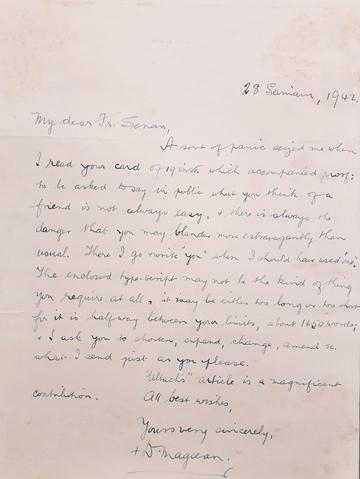 28 Samain, 1942.
My dear Fr. Senan,
A sort of panic seized me when
I read your card of 19 inst. which accompanied proof:
to be asked to say in public what you think of a
friend is not always easy, & there is always the
danger that you may blunder more extravagantly than
usual. There I go & write "you" when I should have used "one".
The enclosed typescript may not be the kind of thing
you require at all, & it may be either too long or too short
for it is half-way between your limits, about 1650 words;
& I ask you to shorten, expand, change, amend &c.
what I send just as you please.
article is a magnificent
contribution.
All best wishes,
Yours very sincerely,
+ D.